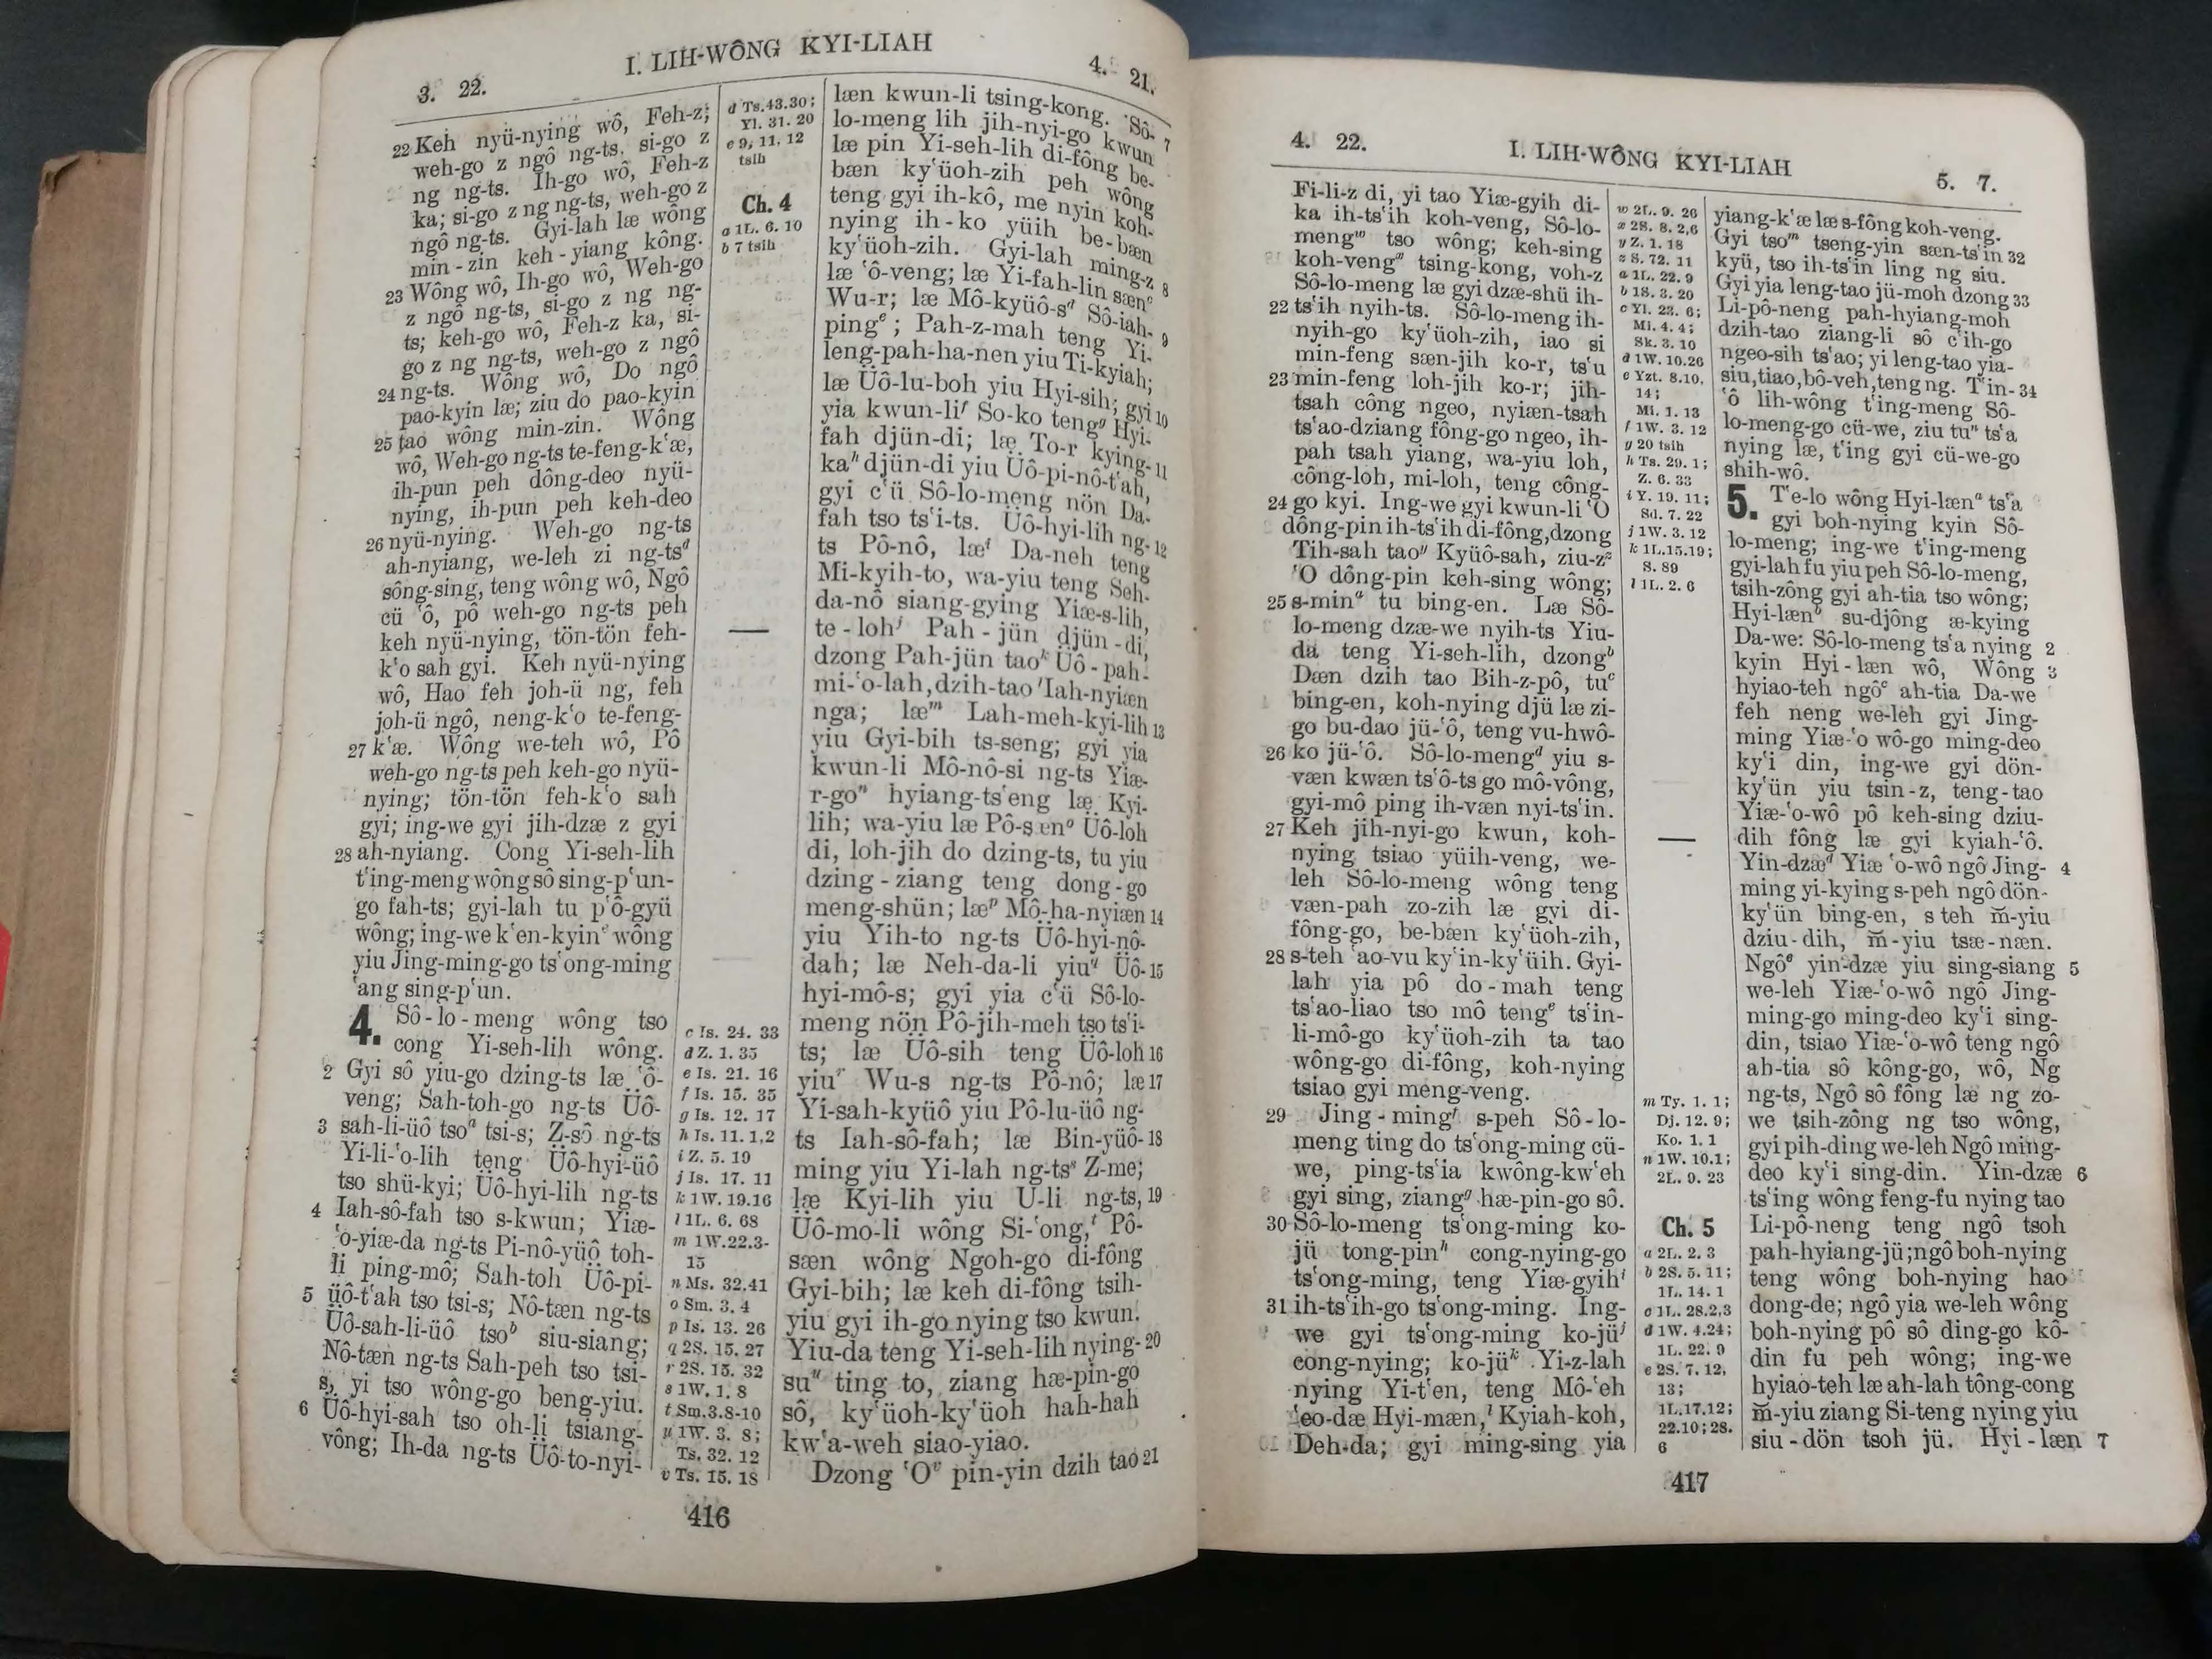 3. 22.
I. LIH-WÔNG KYI-LIAH
4. 21.
22 Keh nyü-nying wô, Feh-z;
weh-go z ngô ng-ts, si-go z
ng ng-ts. Ih-go wô, Feh-z
ka; si-go z ng ng-ts, weh-go z
ngô ng-ts. Gyi-lah læ wông
min-zin keh-yiang kông.
23 Wông wô, Ih-go wô, Weh-go
z ngô ng-ts, si-go z ng ng-
ts; keh-go wô, Feh-z ka, si-
go z ng ng-ts, weh-go z ngô
24 ng-ts. Wông wô, Do ngô
pao-kyin læ; ziu do pao-kyin
25 tao wông min-zin. Wông
wô, Weh-go ng-ts te-feng-kʻæ,
ih-pun peh dông-deo nyü-
nying, ih-pun peh keh-deo
26 nyü-nying. Weh-go ng-ts
ah-nyiang, we-leh zi ng-tsᵈ
sông-sing, teng wông wô, Ngô
cü ʻô, pô weh-go ng-ts peh
keh nyü-nying, tön-tön feh-
kʻo sah gyi. Keh nyü-nying
wô, Hao feh joh-ü ng, feh
joh-ü ngô, neng-kʻo te-feng-
27 kʻæ. Wông we-teh wô, Pô
weh-go ng-ts peh keh-go nyü-
nying; tön-tön feh-kʻo sah
gyi; ing-we gyi jih-dzæ z gyi
28 ah-nyiang. Cong Yi-seh-lih
tʻing-meng wông sô sing-pʻun-
go fah-ts; gyi-lah tu pʻô-gyü
wông; ing-we kʻen-kyinᵉ wông
yiu Jing-ming-go tsʻong-ming
ʻang sing-pʻun.
4. Sô-lo-meng wông tso
cong Yi-seh-lih wông.
2 Gyi sô yiu-go dzing-ts læ ʻô-
veng; Sah-toh-go ng-ts Üô-
3 sah-li-üô tsoᵃ tsi-s; Z-sô ng-ts
Yi-li-ʻo-lih teng Üô-hyi-üô
tso shü-kyi; Üô-hyi-lih ng-ts
4 Iah-sô-fah tso s-kwun; Yiæ-
ʻo-yiæ-da ng-ts Pi-nô-yüô toh-
li ping-mô; Sah-toh Üô-pi-
5 üô-tʻah tso tsi-s; Nô-tæn ng-ts
Üô-sah-li-üô tsoᵇ siu-siang;
Nô-tæn ng-ts Sah-peh tso tsi-
s, yi tso wông-go beng-yiu.
6 Üô-hyi-sah tso oh-li tsiang-
vông; Ih-da ng-ts Üô-to-nyi-
d Ts.43.30;
Yl. 31. 20
e 9, 11, 12
tsih
Ch. 4
a 1L. 6. 10
b 7 tsih
c Is. 24. 33
d Z. 1. 35
e Is. 21. 16
f Is. 15. 35
g Is. 12. 17
h Is. 11. 1,2
i Z. 5. 19
j Is. 17. 11
k 1W. 19.16
l 1L. 6. 68
m 1W.22.3-
15
n Ms. 32.41
o Sm. 3. 4
p Is. 13. 26
q 2S. 15. 27
r 2S. 15. 32
s 1W. 1. 8
t Sm.3.8-10
u 1W. 3. 8;
Ts. 32. 12
v Ts. 15. 18
læn kwun-li tsing-kong. Sô- 7
lo-meng lih jih-nyi-go kwun
læ pin Yi-seh-lih di-fông be-
bæn kyʻüoh-zih peh wông
teng gyi ih-kô, me nyin koh-
nying ih-ko yüih be-bæn
kyʻüoh-zih. Gyi-lah ming-z 8
læ ʻô-veng; læ Yi-fah-lin sænᶜ
Wu-r; læ Mô-kyüô-sᵈ Sô-iah- 9
pingᵉ; Pah-z-mah teng Yi-
leng-pah-ha-nen yiu Ti-kyiah;
læ Üô-lu-boh yiu Hyi-sih; gyi 10
yia kwun-liᶠ So-ko tengᵍ Hyi-
fah djün-di; læ To-r kying- 11
kaʰ djün-di yiu Üô-pi-nô-tʻah,
gyi cʻü Sô-lo-meng nön Da-
fah tso tsʻi-ts. Üô-hyi-lih ng- 12
ts Pô-nô, læⁱ Da-neh teng
Mi-kyih-to, wa-yiu teng Seh-
da-nô siang-gying Yiæ-s-lih,
te-lohʲ Pah-jün djün-di,
dzong Pah-jün taoᵏ Üô-pah-
mi-ʻo-lah, dzih-tao ˡIah-nyiæn
nga; læᵐ Lah-meh-kyi-lih 13
yiu Gyi-bih ts-seng; gyi yia
kwun-li Mô-nô-si ng-ts Yiæ-
r-goⁿ hyiang-tsʻeng læ Kyi-
lih; wa-yiu læ Pô-senᵒ Üô-loh
di, loh-jih do dzing-ts, tu yiu
dzing-ziang teng dong-go
meng-shün; læᵖ Mô-ha-nyiæn 14
yiu Yih-to ng-ts Üô-hyi-nô-
dah; læ Neh-da-li yiu𐞥 Üô- 15
hyi-mô-s; gyi yia cʻü Sô-lo-
meng nön Pô-jih-meh tso tsʻi-
ts; læ Üô-sih teng Üô-loh 16
yiuʳ Wu-s ng-ts Pô-nô; læ 17
Yi-sah-kyüô yiu Pô-lu-üô ng-
ts Iah-sô-fah; læ Bin-yüô- 18
ming yiu Yi-lah ng-tsˢ Z-me;
læ Kyi-lih yiu U-li ng-ts, 19
Üô-mo-li wông Si-ʻong,ᵗ Pô-
sæn wông Ngoh-go di-fông
Gyi-bih; læ keh di-fông tsih-
yiu gyi ih-go nying tso kwun.
Yiu-da teng Yi-seh-lih nying- 20
suᵘ ting to, ziang hæ-pin-go
sô, kyʻüoh-kyʻüoh hah-hah
kwʻa-weh siao-yiao.
Dzong ʻOᵛ pin-yin dzih tao 21
416
4. 22.
I. LIH-WÔNG KYI-LIAH
5. 7.
Fi-li-z di, yi tao Yiæ-gyih di-
ka ih-tsʻih koh-veng, Sô-lo-
mengʷ tso wông; keh-sing
koh-vengˣ tsing-kong, voh-z
Sô-lo-meng læ gyi dzæ-shü ih-
22 tsʻih nyih-ts. Sô-lo-meng ih-
nyih-go kyʻüoh-zih, iao si
min-feng sæn-jih ko-r, tsʻu
23 min-feng loh-jih ko-r; jih-
tsah công ngeo, nyiæn-tsah
tsʻao-dziang fông-go ngeo, ih-
pah tsah yiang, wa-yiu loh,
công-loh, mi-loh, teng công-
24 go kyi. Ing-we gyi kwun-li ʻO
dông-pin ih-tsʻih di-fông, dzong
Tih-sah taoʸ Kyüô-sah, ziu-zᶻ
ʻO dông-pin keh-sing wông;
25 s-minᵃ tu bing-en. Læ Sô-
lo-meng dzæ-we nyih-ts Yiu-
da teng Yi-seh-lih, dzongᵇ
Dæn dzih tao Bih-z-pô, tuᶜ
bing-en, koh-nying djü læ zi-
go bu-dao jü-ʻô, teng vu-hwô-
26 ko jü-ʻô. Sô-lo-mengᵈ yiu s-
væn kwæn tsʻô-ts go mô-vông,
gyi-mô ping ih-væn nyi-tsʻin.
27 Keh jih-nyi-go kwun, koh-
nying tsiao yüih-veng, we-
leh Sô-lo-meng wông teng
væn-pah zo-zih læ gyi di-
fông-go, be-bæn kyʻüoh-zih,
28 s-teh ʻao-vu kyʻin-kyʻüih. Gyi-
lah yia pô do-mah teng
tsʻao-liao tso mô tengᵉ tsʻin-
li-mô-go kyʻüoh-zih ta tao
wông-go di-fông, koh-nying
tsiao gyi meng-veng.
29 Jing-mingᶠ s-peh Sô-lo-
meng ting do tsʻong-ming cü-
we, ping-tsʻia kwông-kwʻeh
gyi sing, ziangᵍ hæ-pin-go sô.
30 Sô-lo-meng tsʻong-ming ko-
jü tong-pinʰ cong-nying-go
tsʻong-ming, teng Yiæ-gyihⁱ
31 ih-tsʻih-go tsʻong-ming. Ing-
we gyi tsʻong-ming ko-jüʲ
cong-nying; ko-jüᵏ Yi-z-lah
nying Yi-tʻen, teng Mô-ʻeh
ʻeo-dæ Hyi-mæn,ˡ Kyiah-koh,
Deh-da; gyi ming-sing yia
w 2L. 9. 26
x 2S. 8. 2,6
y Z. 1. 18
z S. 72. 11
a 1L. 22. 9
b 1S. 3. 20
c Yl. 23. 6;
Mi. 4. 4;
Sk. 3. 10
d 1W. 10.26
e Yzt. 8.10,
14;
Mi. 1. 13
f 1W. 3. 12
g 20 tsih
h Ts. 29. 1;
Z. 6. 33
i Y. 19. 11;
Sd. 7. 22
j 1W. 3. 12
k 1L.15.19;
S. 89
l 1L. 2. 6
m Ty. 1. 1;
Dj. 12. 9;
Ko. 1. 1
n 1W. 10.1;
2L. 9. 23
Ch. 5
a 2L. 2. 3
b 2S. 5. 11;
1L. 14. 1
c 1L. 28.2,3
d 1W. 4.24;
1L. 22. 9
e 2S. 7. 12,
13;
1L.17.12;
22.10; 28.
6
yiang-kʻæ læ s-fông koh-veng.
Gyi tsoᵐ tseng-yin sæn-tsʻin 32
kyü, tso ih-tsʻin ling ng siu.
Gyi yia leng-tao jü-moh dzong 33
Li-pô-neng pah-hyiang-moh
dzih-tao ziang-li sô cʻih-go
ngeo-sih tsʻao; yi leng-tao yia-
siu, tiao, bô-veh, teng ng. Tʻin- 34
ʻô lih-wông tʻing-meng Sô-
lo-meng-go cü-we, ziu tuⁿ tsʻa
nying læ, tʻing gyi cü-we-go
shih-wô.
5. Tʻe-lo wông Hyi-lænᵃ tsʻa
gyi boh-nying kyin Sô-
lo-meng; ing-we tʻing-meng
gyi-lah fu yiu peh Sô-lo-meng,
tsih-zông gyi ah-tia tso wông;
Hyi-lænᵇ su-djông æ-kying
Da-we: Sô-lo-meng tsʻa nying 2
kyin Hyi-læn wô, Wông 3
hyiao-teh ngôᶜ ah-tia Da-we
feh neng we-leh gyi Jing-
ming Yiæ-ʻo wô-go ming-deo
kyʻi din, ing-we gyi dön-
kyʻün yiu tsin-z, teng-tao
Yiæ-ʻo-wô pô keh-sing dziu-
dih fông læ gyi kyiah-ʻô.
Yin-dzæᵈ Yiæ ʻo-wô ngô Jing- 4
ming yi-kying s-peh ngô dön-
kyʻün bing-en, s teh m̆-yiu
dziu-dih, m̆-yiu tsæ-næn.
Ngôᵉ yin-dzæ yiu sing-siang 5
we-leh Yiæ-ʻo-wô ngô Jing-
ming-go ming-deo kyʻi sing-
din, tsiao Yiæ-ʻo-wô teng ngô
ah-tia sô kông-go, wô, Ng
ng-ts, Ngô sô fông læ ng zo-
we tsih-zông ng tso wông,
gyi pih-ding we-leh Ngô ming-
deo kyʻi sing-din. Yin-dzæ 6
tsʻing wông feng-fu nying tao
Li-pô-neng teng ngô tsoh
pah-hyiang-jü; ngô boh-nying
teng wông boh-nying hao
dong-de; ngô yia we-leh wông
boh-nying pô sô ding-go kô-
din fu peh wông; ing-we
hyiao-teh læ ah-lah tông-cong
m̆-yiu ziang Si-teng nying yiu
siu-dön tsoh jü. Hyi-læn 7
417